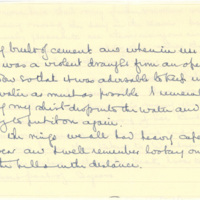 built of cement and when in use
was a violent draught from an open
so that it was advisable to keep
as much as possible I remember
my shirt dropped into the water and
to put it on again.
the nights we all had heavy
and I well remember looking
the hills in the distance.